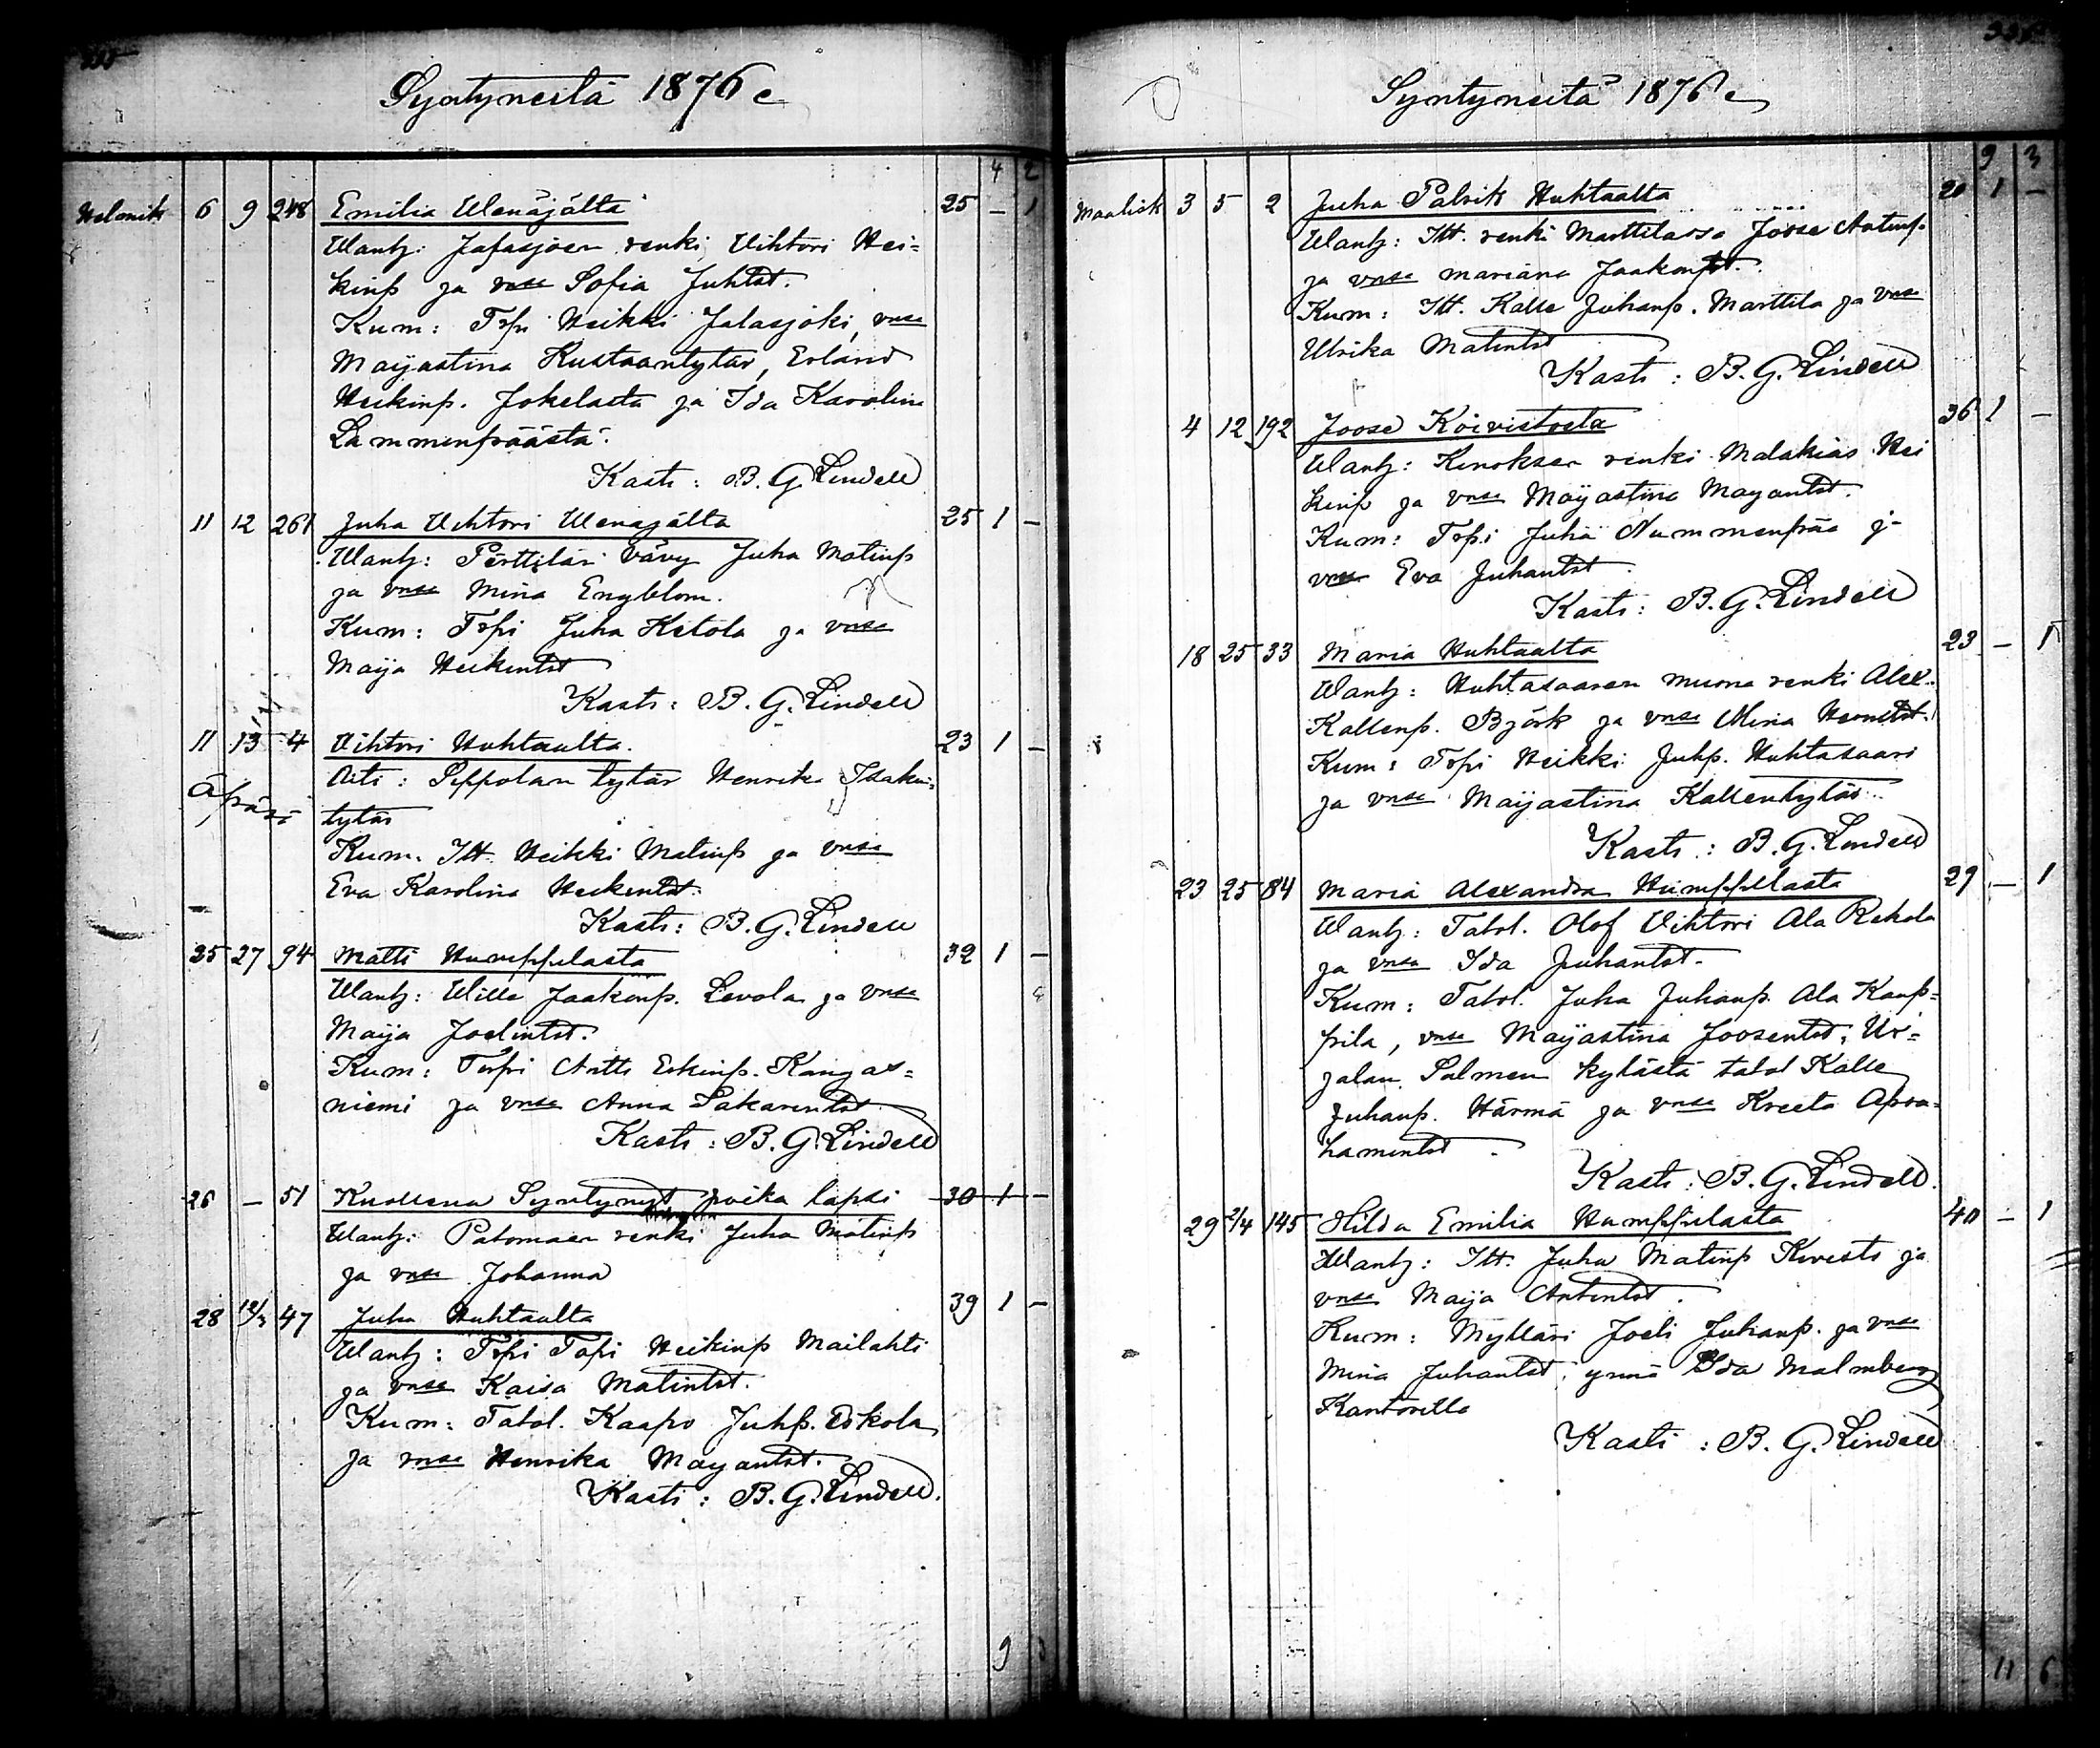 Syntyneitä 1876
4 2
Helmik 6 9 248 Emilia Wenäjältä 25 – 1
Wanh: Jalasjoen renki Vihtori Hei=
kinp ja vmsa Sofia Juhtst.
Kum: Trpi Heikki Jalasjoki, vmsa
Maijastina Kustaantytär, Erland
Heikinp. Jokelasta ja Ida Karolina
Lammenpäästä.
Kasti: B. G. Lindell
11 12 261 Juha Vihtori Wenäjältä 25 1 –
Wanh: Perttilän vävy Juha Matinp
ja vmsa Mina Engblom.
Kum: Trpi Juha Ketola ja vmsa
Maija Heikintst
Kasti: B. G. Lindell
11 13 4 Vihtori Huhtaalta. 23 1 –
Äpärä
Äiti: Seppolan tytär Henrika Isakin=
tytär
Kum. Itt. Heikki Matinp ja vmsa
Eva Karolina Heikintst.
Kasti: B. G. Lindell
25 27 94 Matti Humppilasta 32 1 –
Wanh: Wille Jaakonp. Levola ja vmsa
Maija Joelintst.
Kum: Trpi Antti Erkinp. Kangas=
niemi ja vmsa Anna Sakarintst
Kasti: B. G. Lindell
26 – 51 Kuollena Syntynyt poika lapsi 30 1 –
Wanh: Patomaen renki Juha Matinp
ja vmsa Johanna
28 12/3 47 Juha Huhtaalta 39 1 –
Wanh: Trpi Tapi Heikinp Mailahti
ja vmsa Kaisa Matintst.
Kum: Talol. Kaapo Juhp. Eskola
ja vmsa Henrika Mayantst.
Kasti: B. G. Lindell.
9
Syntyneitä 1876
9 3
Maalisk 3 5 2 Juha Patrik Huhtaalta 20 1 –
Wanh: Itt. renki Marttilassa Joose Antinp.
ja vmsa Mariana Jaakontst.
Kum: Itt. Kalle Juhanp. Marttila ja vmsa
Ulrika Matintst
Kasti: B. G. Lindell
4 12 192 Joose Koivistosta 36 1 –
Wanh: Kenoksen renki Malakias Hei
kinp ja vmsa Maijastina Mayantst.
Kum: Trpi Juha Nummenpää ja
vmsa Eva Juhantst
Kasti: B. G. Lindell
18 25 33 Maria Huhtaalta 23 – 1
Wanh: Huhtasaaren muona renki Alex.
Kallenp. Björk ja vmsa Mina
Kum: Trpi Heikki Juhp. Huhtasaari
ja vmsa Maijastina Kallentytär
Kasti: B. G. Lindell
23 25 84 Maria Alexandra Humppilasta 29 – 1
Wanh: Talol. Olof Vihtori Ala Rekola
ja vmsa Ida Juhantst.
Kum: Talol. Juha Juhanp. Ala Kaup=
pila, vmsa Maijastina Joosentst, Ur=
jalan Salmen kylästä talol Kalle
Juhanp. Härmä ja vmsa Kreeta Apra=
hamintst
Kasti: B. G. Lindell.
29 2/4 145 Hilda Emilia Humppilasta 40 – 1
Wanh: Itt. Juha Matinp Kvisti ja
vmsa Maija Antintst.
Kum: Mylläri Joeli Juhanp. ja vmsa
Mina Juhantst, ynnä Ida Malmberg
Kantorilla
Kasti: B. G. Lindell
11 6